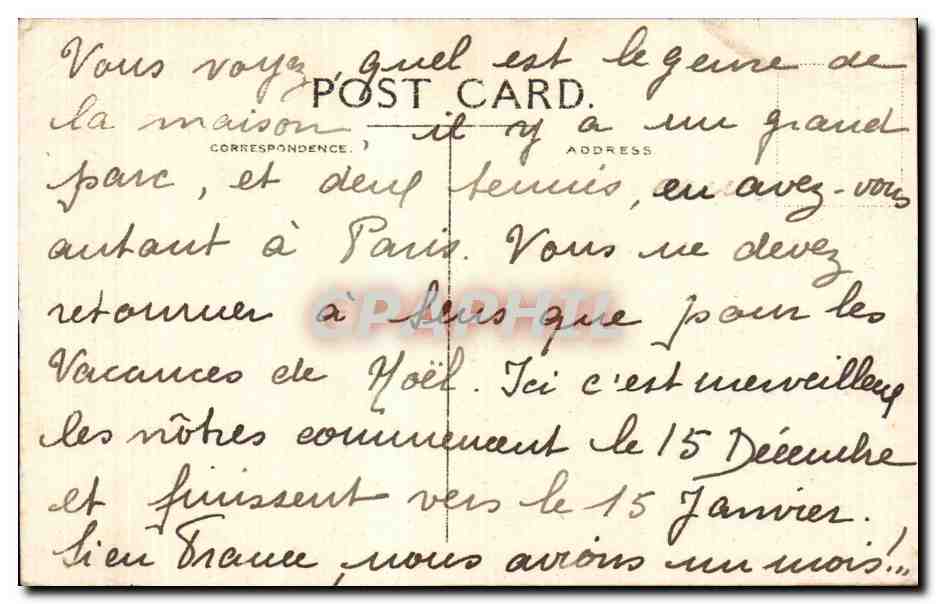 Vous voyez, quel est le genre de
POST CARD.
la maison, il y a un grand
CORRESPONDENCE. ADDRESS
parc, et deux tennis, en avez-vous
autant à Paris. Vous ne devez
retourner à Sens que pour les
CPAPHIL
Vacances de Noël. Ici c'est merveilleux
les nôtres commencent le 15 Décembre
et finissent vers le 15 Janvier.
Si en France, nous avions un mois!...